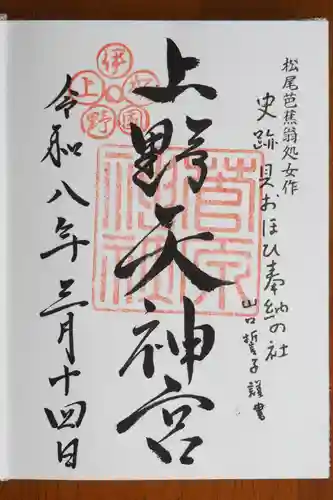 松尾芭蕉翁処女作
史跡貝おほひ奉納の社
山口誓子謹書
上野天神宮
伊賀国上野
菅原神社
令和八年三月十四日